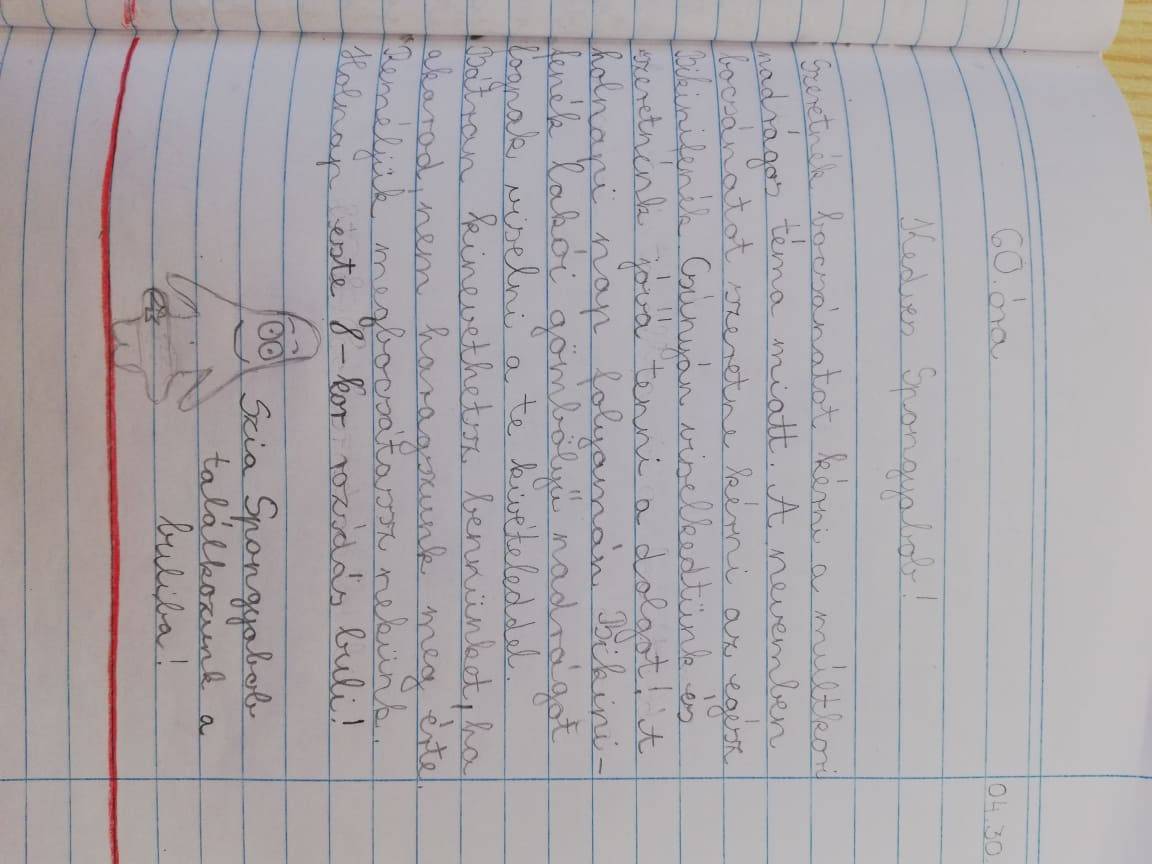 60. óra 04.30
Kedves Spongyabob!
Szeretnék bocsánatot kérni a múltkori
nadrágos téma miatt. A nevemben
bocsánatot szeretne kérni az egész
Bikinifenék. Csúnyán viselkedtünk és
szeretnénk jóvá tenni a dolgot! A
holnapi nap folyamán Bikini-
fenék lakói gömbölyű nadrágot
fognak viselni a te kivételeddel.
Bátran kinevethetsz bennünket, ha
akarod, nem haragszunk meg érte.
Reméljük megbocsátassz nekünk.
Holnap este 8-kor rozsdás buli!
Szia Spongyabob
találkozunk a
buliba!